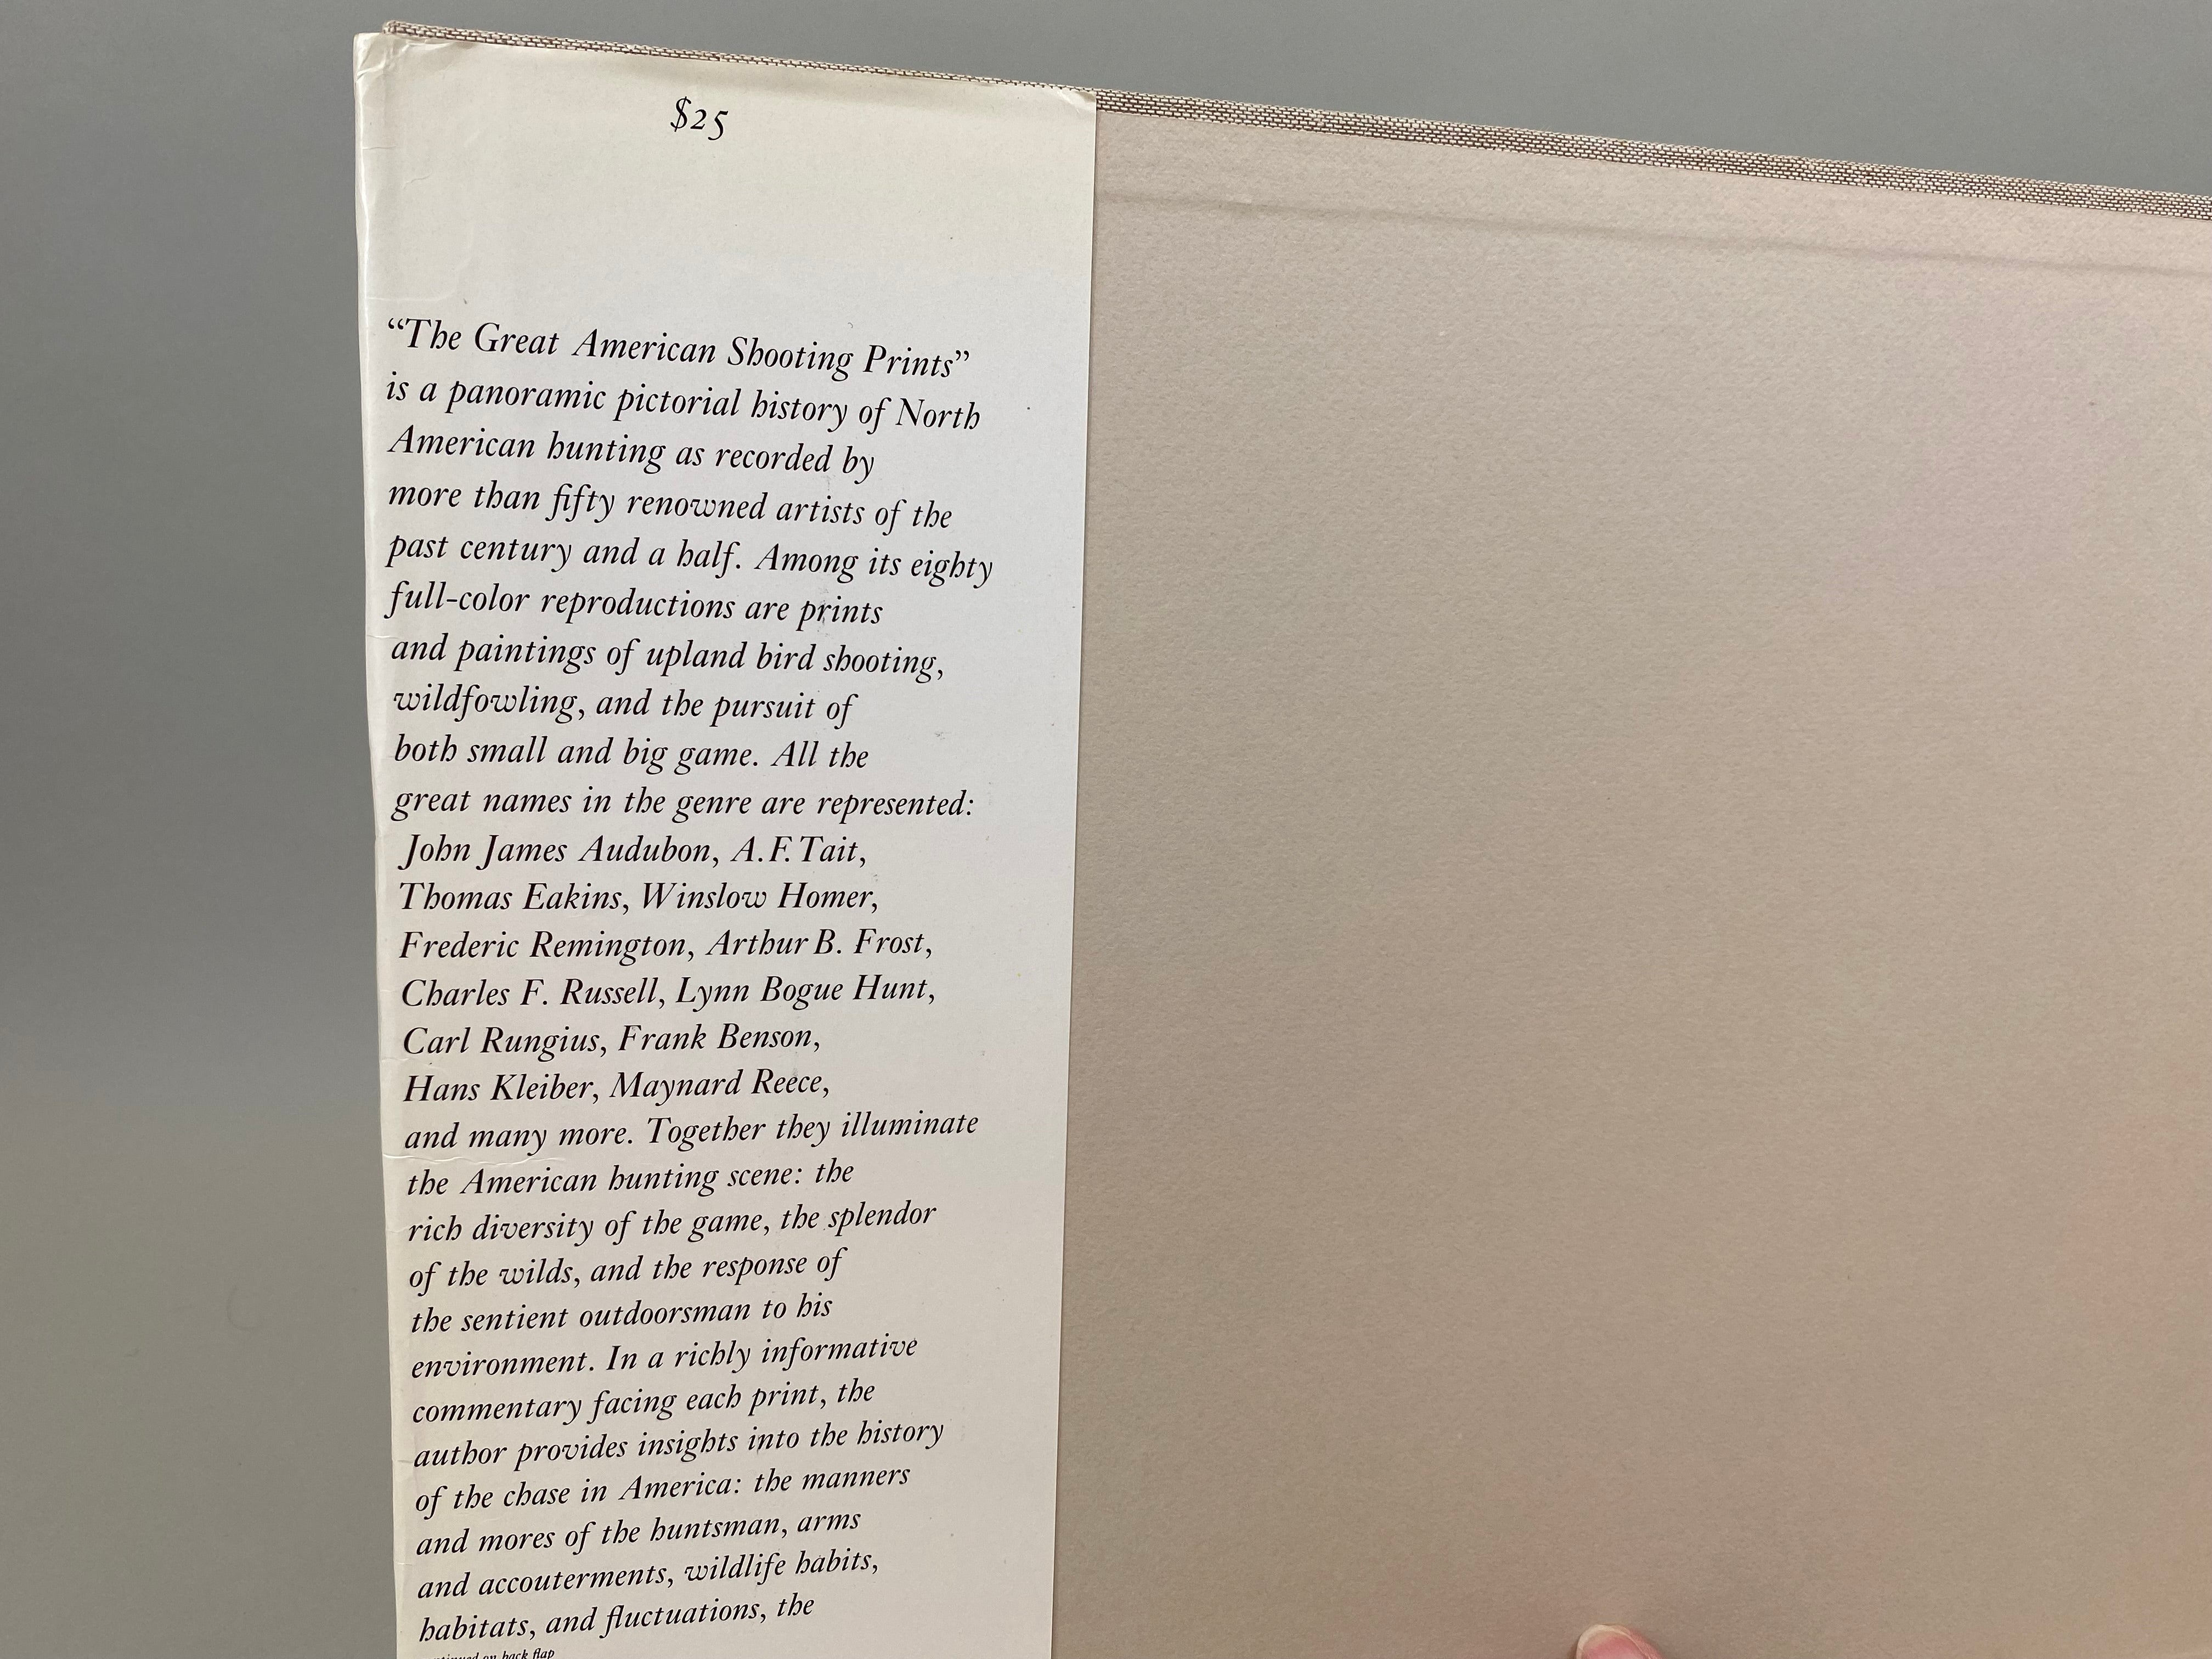 $25
“The Great American Shooting Prints”
is a panoramic pictorial history of North
American hunting as recorded by
more than fifty renowned artists of the
past century and a half. Among its eighty
full-color reproductions are prints
and paintings of upland bird shooting,
wildfowling, and the pursuit of
both small and big game. All the
great names in the genre are represented:
John James Audubon, A.F. Tait,
Thomas Eakins, Winslow Homer,
Frederic Remington, Arthur B. Frost,
Charles F. Russell, Lynn Bogue Hunt,
Carl Rungius, Frank Benson,
Hans Kleiber, Maynard Reece,
and many more. Together they illuminate
the American hunting scene: the
rich diversity of the game, the splendor
of the wilds, and the response of
the sentient outdoorsman to his
environment. In a richly informative
commentary facing each print, the
author provides insights into the history
of the chase in America: the manners
and mores of the huntsman, arms
and accouterments, wildlife habits,
habitats, and fluctuations, the
on back flap